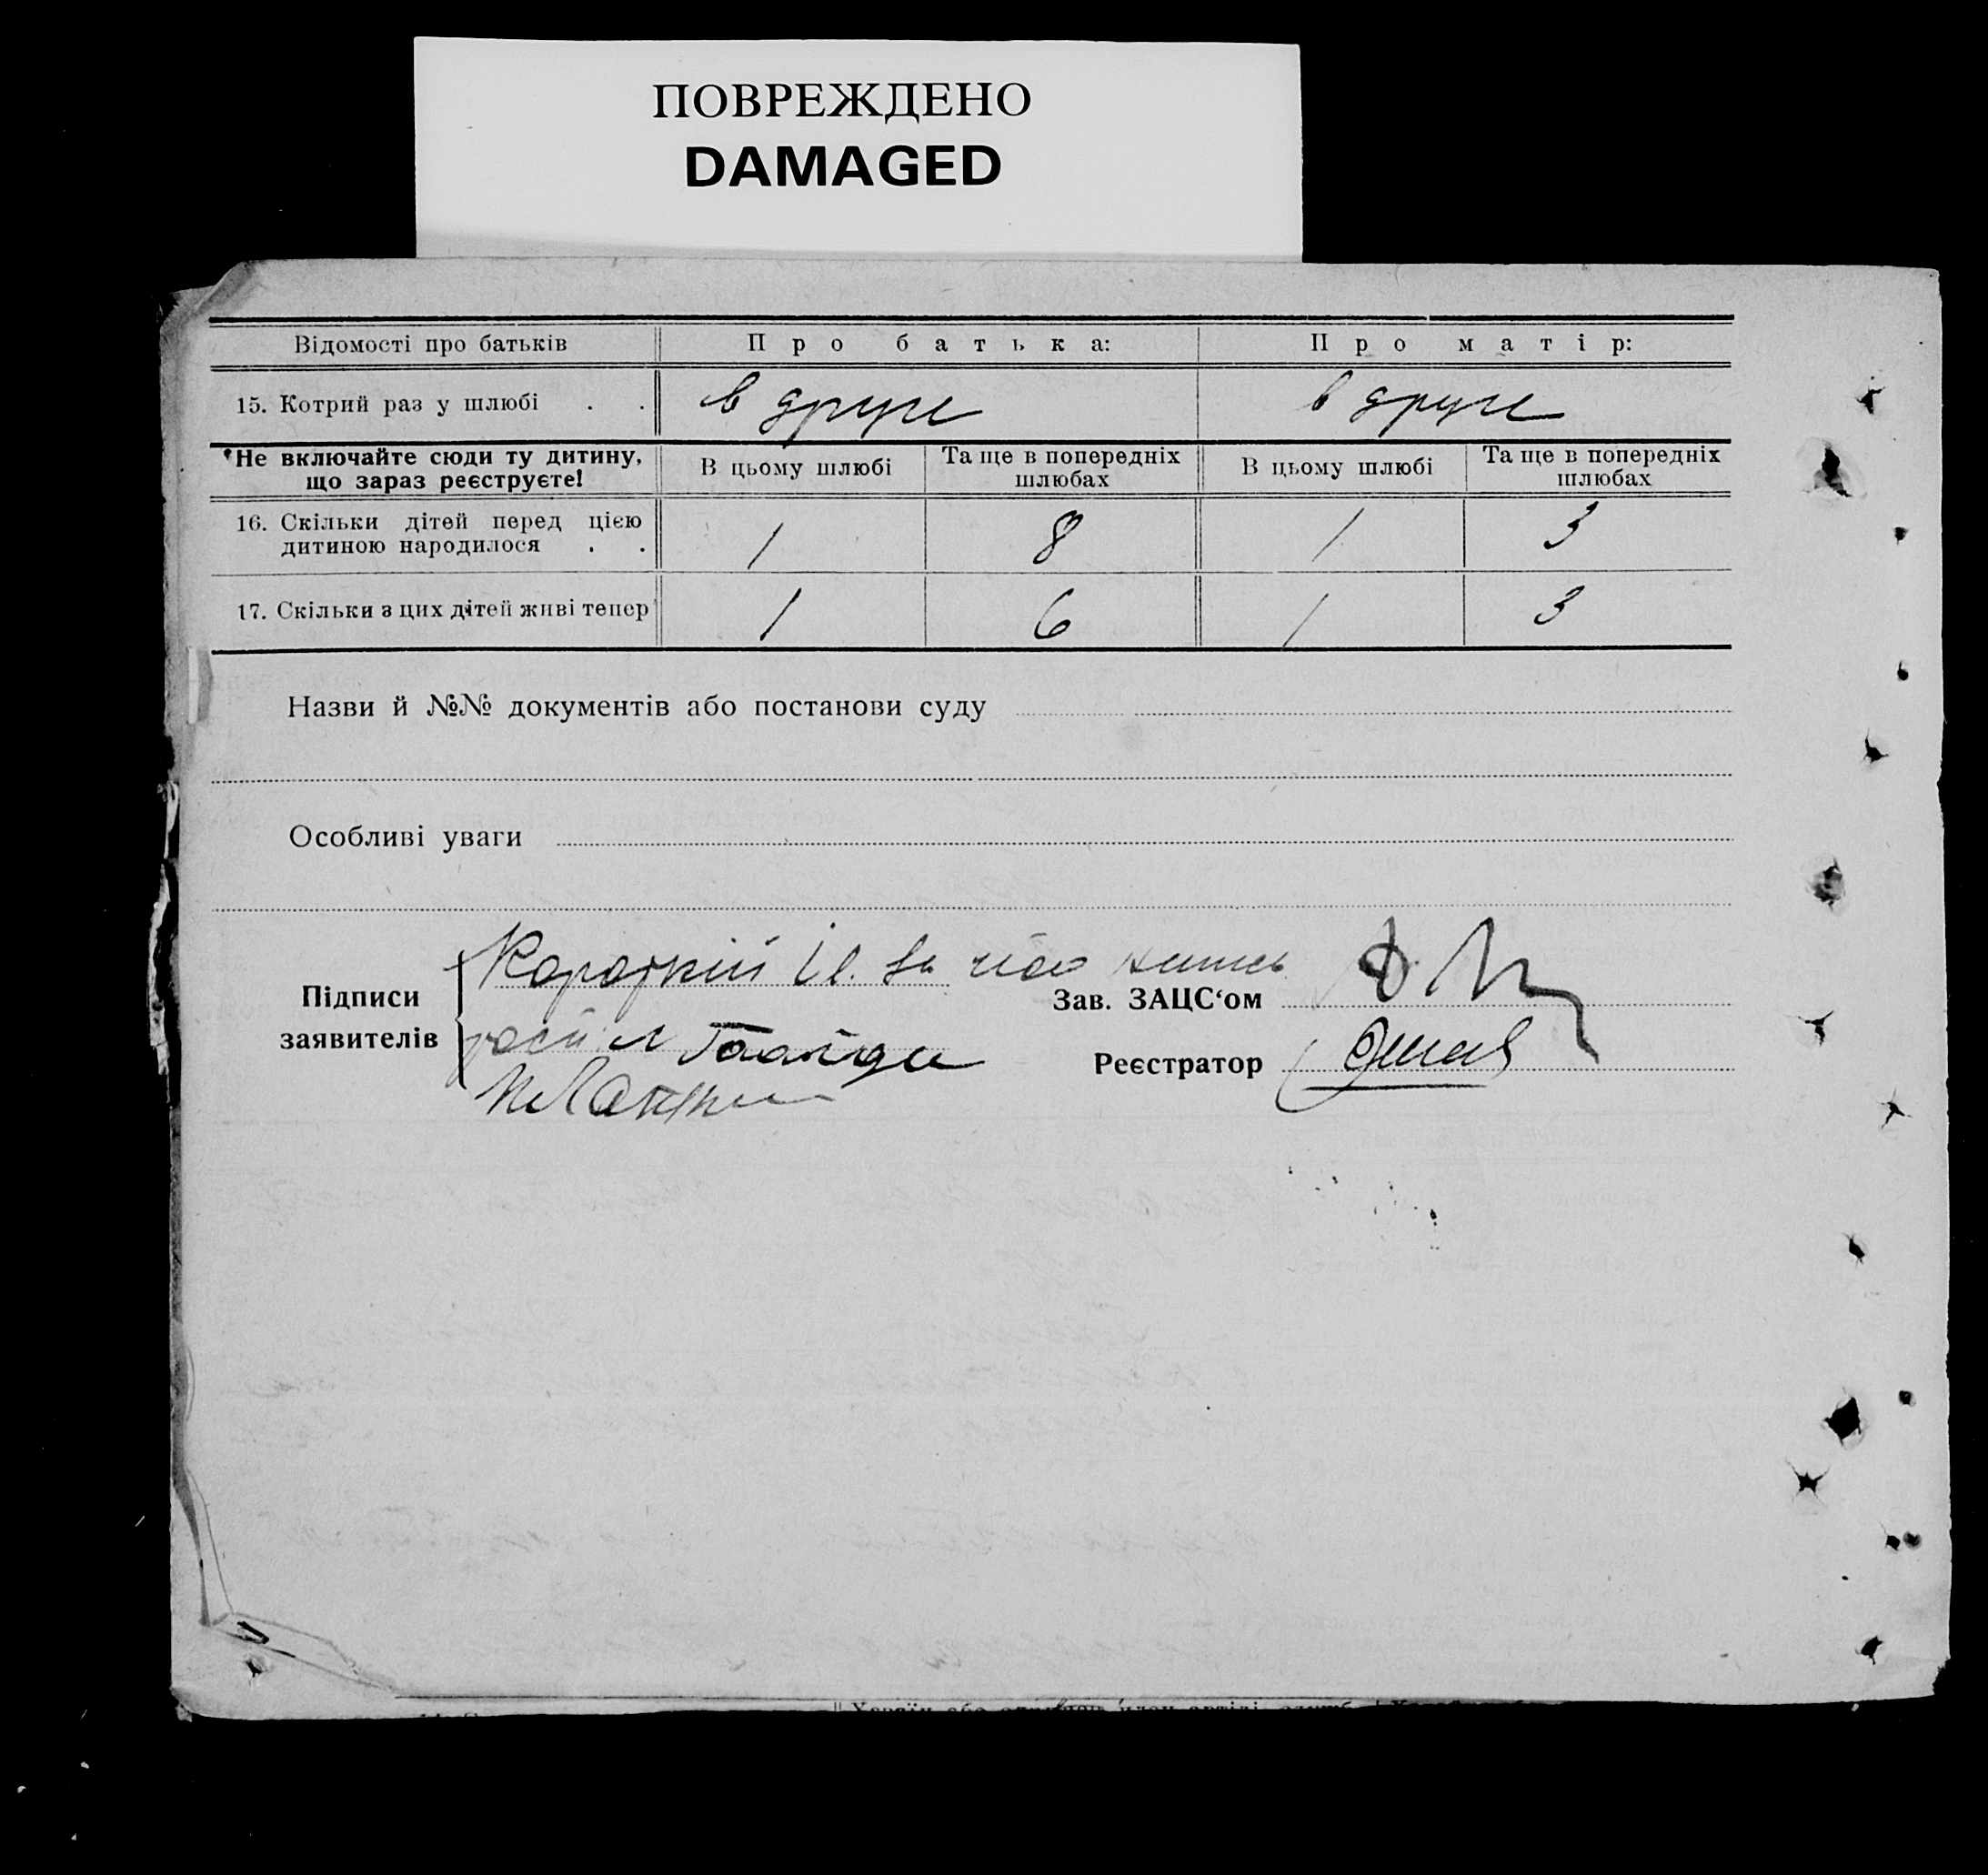 ПОВРЕЖДЕНО
DAMAGED
Відомості про батьків Про батька: Про матір:
15. Котрий раз у шлюбі . . в друге в друге
*Не включайте сюди ту дитину, що зараз реєструєте! В цьому шлюбі Та ще в попередніх шлюбах В цьому шлюбі Та ще в попередніх шлюбах
16. Скільки дітей перед цією дитиною народилося . . 1 8 1 3
17. Скільки з цих дітей живі тепер 1 6 1 3
Назви й №№ документів або постанови суду
Особливі уваги
Підписи заявителів
Короткій
Зав. ЗАЦС‘ом
Реєстратор